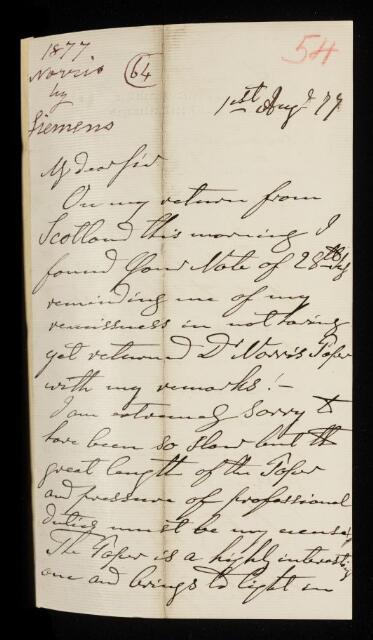 1877
Norris
by
Siemens
64
54
1st Augt 77
My dear Sir
On my return from
Scotland this morning I
found your Note of 28th
reminding me of my
remissness in not having
yet returned Dr Norris Paper
with my remarks! -
I am extremely sorry to
have been so slow but the
great length of the Paper
and pressure of professional
duties must be my excuse.
The Paper is a highly interesting
one and brings to light an